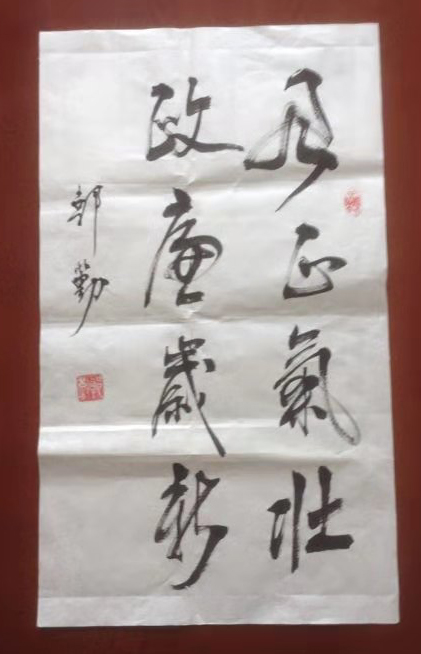 风正氣壮
政廉歲新
郭勤